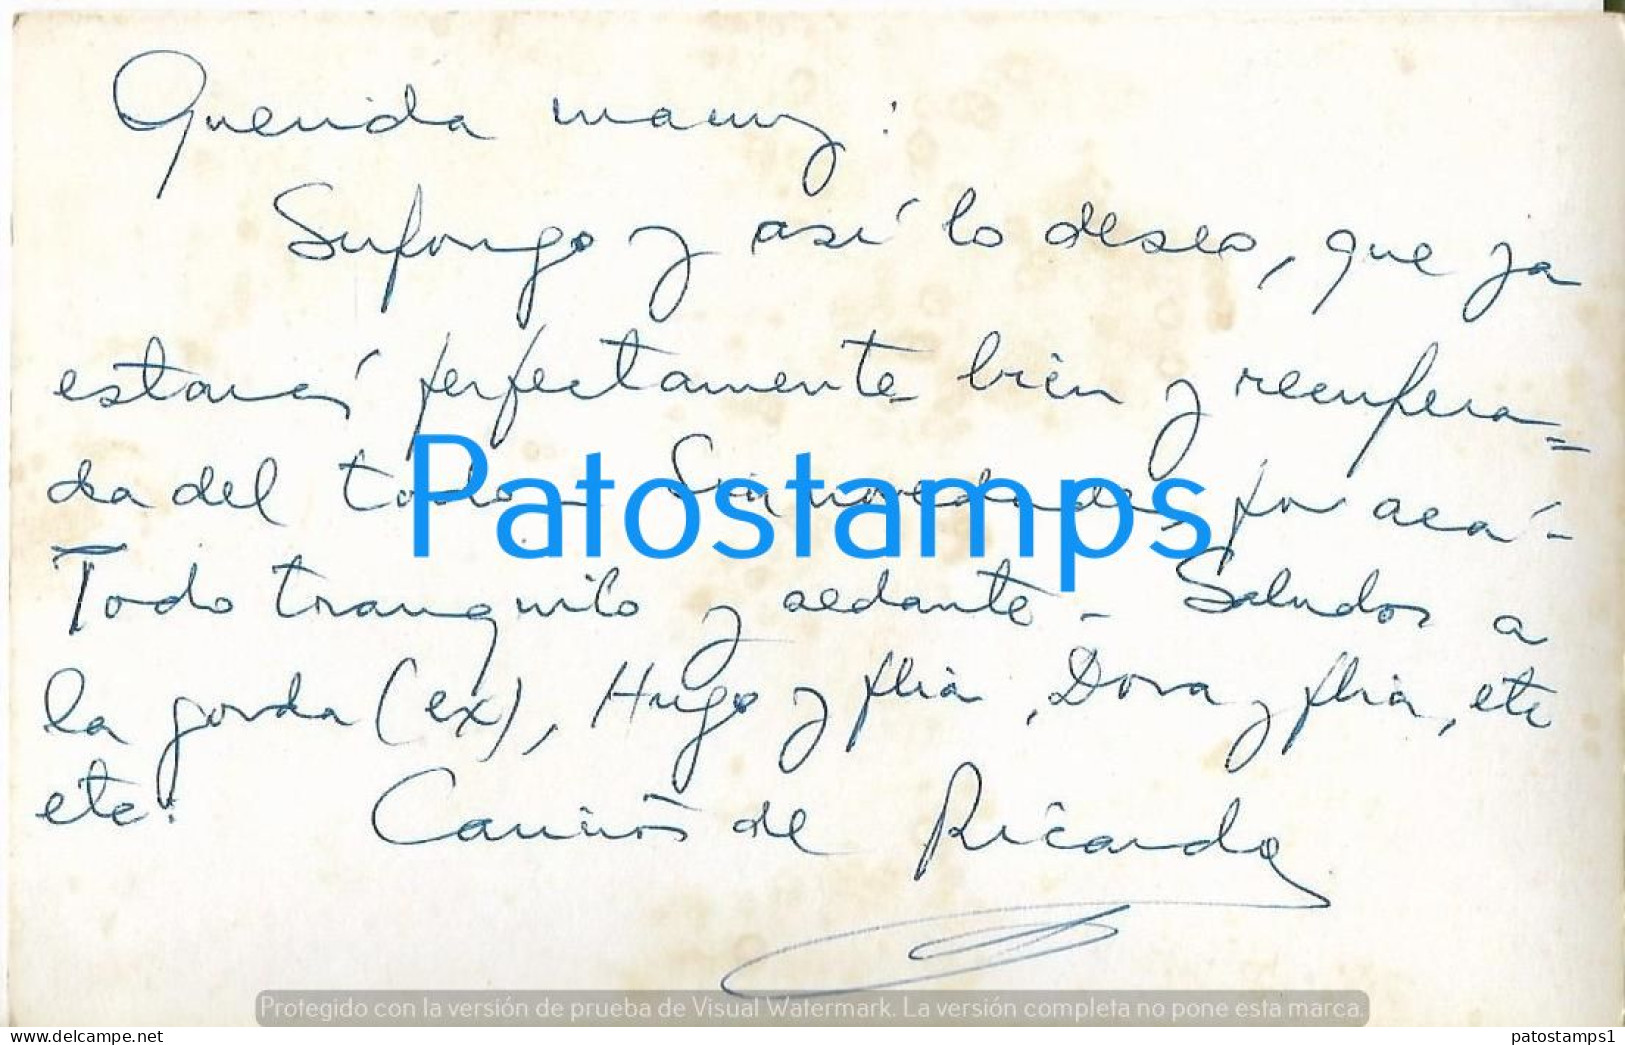 Querida mamy:
Supongo y así lo deseo, que ya
estará perfectamente bien y recupera=
da del todo - Sin novedades por acá -
Patostamps
Todo tranquilo y sedante - Saludos a
la gorda (ex), Hugo y flia, Dora y flia, etc
etc. Cariños de Ricardo
Protegido con la versión de prueba de Visual Watermark. La versión completa no pone esta marca.
www.delcampe.net
patostamps1